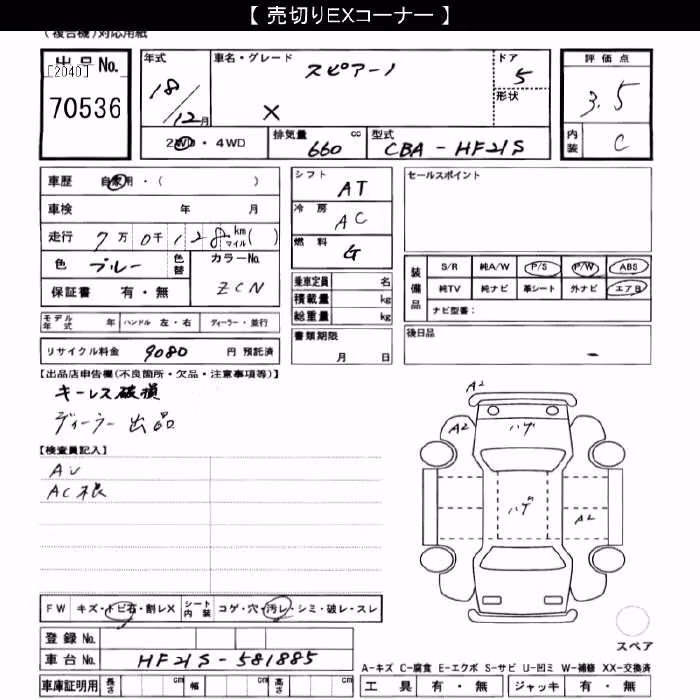 【 売切りEXコーナー 】
(複合機)対応用紙
出品No.
[2040]
70536
年式
18/12月
車名・グレード
スピアーノ
X
ドア
5
形状
評価点
3.5
内装
C
2WD・4WD
排気量 660 cc
型式 CBA-HF21S
車歴 自家用・( )
車検 年 月
走行 7万0千128 km マイル( )
色 ブルー 色替
カラーNo. ZCN
保証書 有・無
シフト AT
冷房 AC
燃料 G
乗車定員 名
積載量 kg
総重量 kg
セールスポイント
装備品
S/R 純A/W P/S P/W ABS
純TV 純ナビ 革シート 外ナビ エアB
ナビ型番:
モデル年式 年 ハンドル 左・右 ディーラー・並行
リサイクル料金 9080 円 預託済
書類期限
月 日
後日品
-
【出品店申告欄(不良箇所・欠品・注意事項等)】
キーレス破損
ディーラー出品
【検査員記入】
AU
AC不良
A2
A2
ハゲ
ハゲ
A2
FW キズ・トビ石・割レX
シート内装 コゲ・穴・汚レ・シミ・破レ・スレ
登録No.
車台No. HF21S-581885
車庫証明用 長さ cm 幅 cm 高さ cm
スペア
A-キズ C-腐食 E-エクボ S-サビ U-凹ミ W-補修 XX-交換済
工具 有・無 ジャッキ 有・無